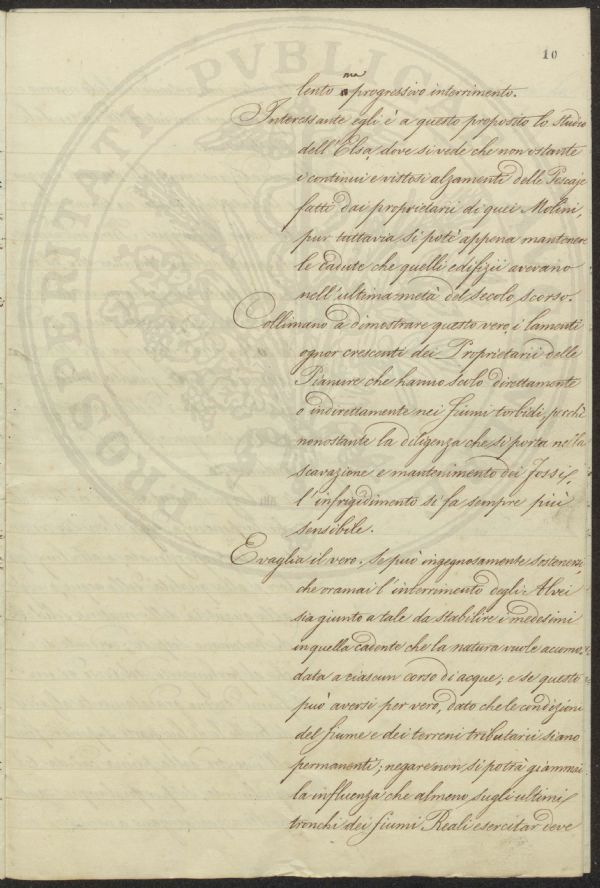 PROSPERITATI PUBLICAE
10
lento ma progressivo interrimento.
Interessante egli è a questo proposito lo studio
dell'Elsa, dove si vede che non ostante
i continui e vistosi alzamenti delle Pescaje
fatti dai proprietarii di quei Molini,
pur tuttavia si potè appena mantenere
le cadute che quelli edifizii avevano
nell'ultima metà del secolo scorso.
Collimano a dimostrare questo vero i lamenti
ognor crescenti dei Proprietarii delle
Pianure che hanno scolo direttamente
o indirettamente nei fiumi torbidi, perchè
nonostante la diligenza che si porta nella
scavazione e mantenimento dei Fossi,
l'infrigidimento si fa sempre più
sensibile.
E vaglia il vero. Se può ingegnosamente sostenersi,
che oramai l'interrimento degli Alvei
sia giunto a tale da stabilire i medesimi
in quella cadente che la natura vuole accomo-
data a ciascun corso di acque; e se questo
può aversi per vero, dato che le condizioni
del fiume e dei terreni tributarii siano
permanenti; negare non si potrà giammai
la influenza che almeno sugli ultimi
tronchi dei fiumi Reali esercitar deve